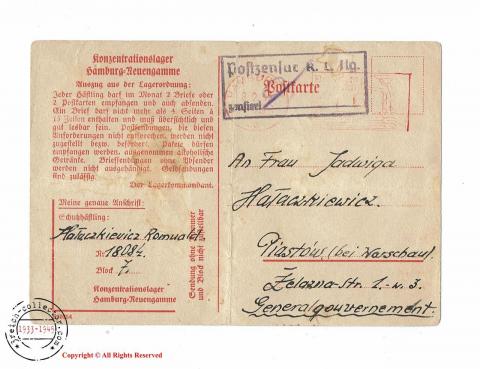 Konzentrationslager
Hamburg-Neuengamme
Auszug aus der Lagerordnung:
Jeder Häftling darf im Monat 2 Briefe oder
2 Postkarten empfangen und auch absenden.
Ein Brief darf nicht mehr als 4 Seiten à
15 Zeilen enthalten und muß übersichtlich und
gut lesbar sein. Postsendungen, die diesen
Anforderungen nicht entsprechen, werden nicht
zugestellt bezw. befördert. Pakete dürfen
empfangen werden, ausgenommen alkoholische
Getränke. Briefsendungen ohne Absender
werden nicht ausgehändigt. Geldsendungen
sind zulässig.
Der Lagerkommandant.
Meine genaue Anschrift:
Schutzhäftling:
Hałaczkiewicz Romuald
Nr. 18084.
Block 7.
Konzentrationslager
Hamburg-Neuengamme
Sendung ohne Nummer
und Block nicht zustellbar
Postzensur K. L. Hg.
Postkarte
An Frau Jadwiga
Hałaczkiewicz.
Piastów (bei Warschau).
Żelazna-Str. 1.-w. 3.
Generalgouvernement.
3reich-collector.com
1933-1945
Copyright © All Rights Reserved